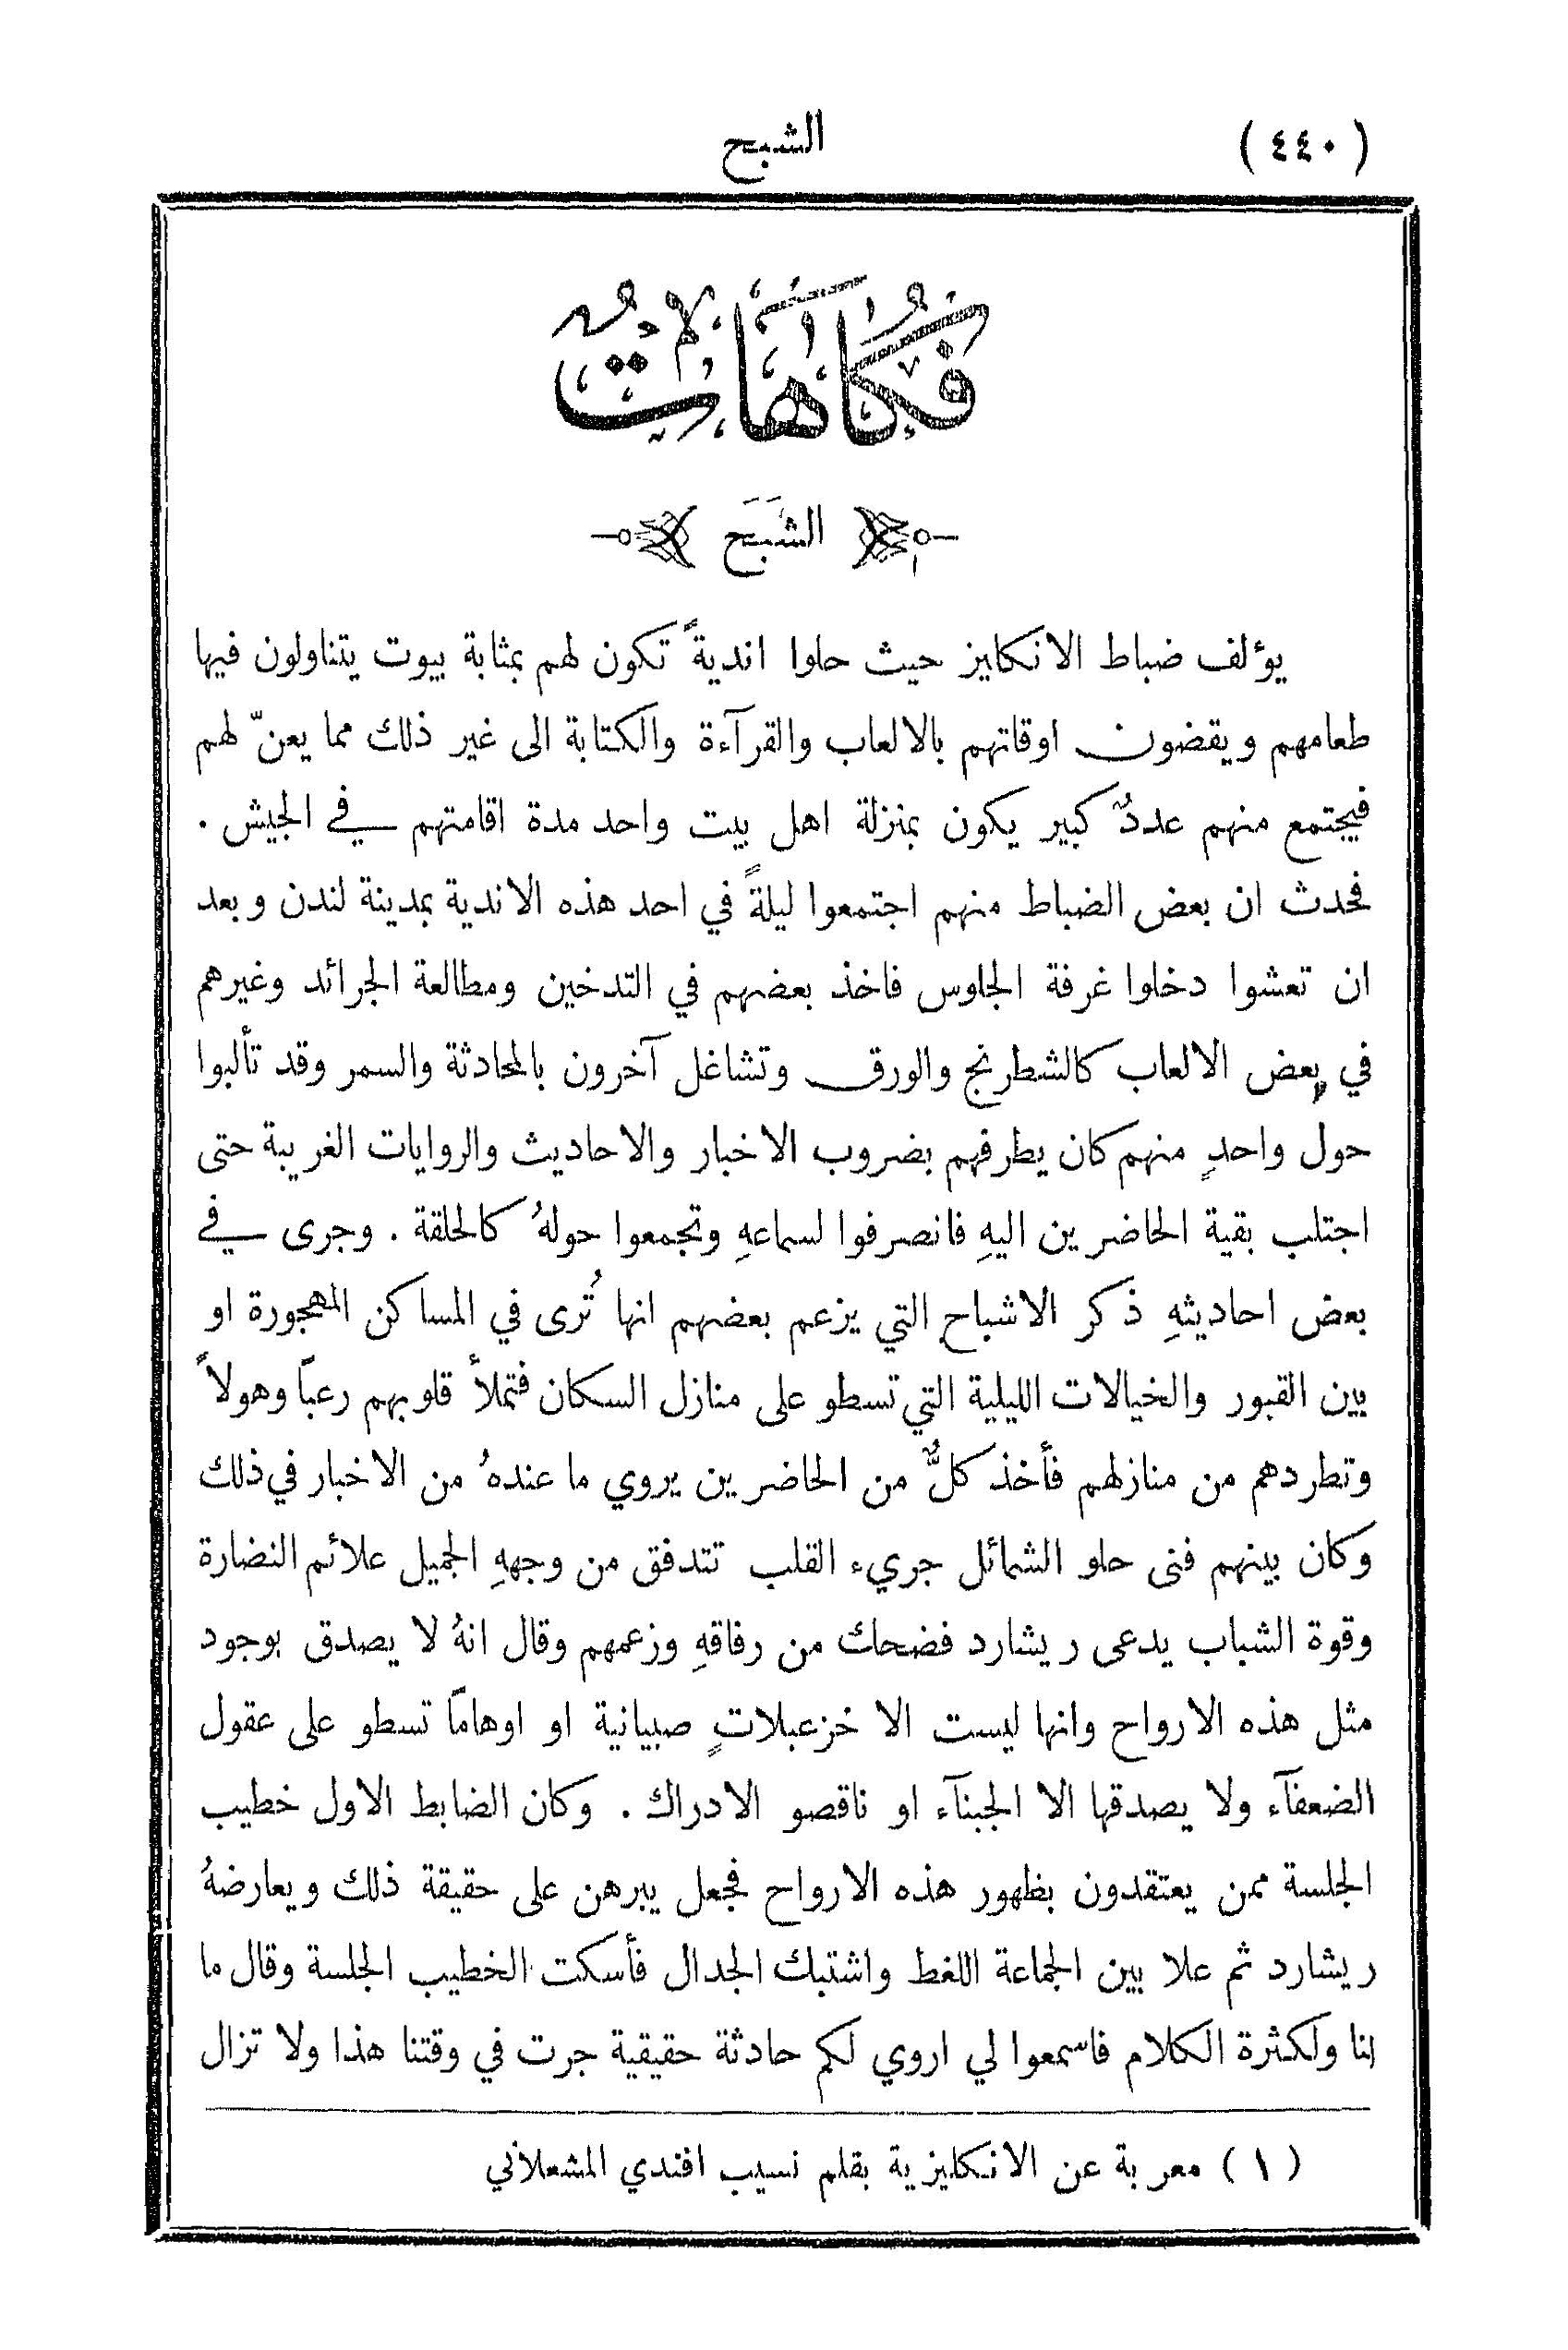 (٤٤٠)
الشبح
فكاهات
الشَبَح
يؤلف ضباط الانكليز حيث حلوا انديةً تكون لهم بمثابة بيوت يتناولون فيها
طعامهم ويقضون اوقاتهم بالالعاب والقرآءة والكتابة الى غير ذلك مما يعنّ لهم
فيجتمع منهم عددٌ كبير يكون بمنزلة اهل بيت واحد مدة اقامتهم في الجيش .
فحدث ان بعض الضباط منهم اجتمعوا ليلةً في احد هذه الاندية بمدينة لندن وبعد
ان تعشوا دخلوا غرفة الجلوس فاخذ بعضهم في التدخين ومطالعة الجرائد وغيرهم
في بعض الالعاب كالشطرنج والورق وتشاغل آخرون بالمحادثة والسمر وقد تألبوا
حول واحدٍ منهم كان يطرفهم بضروب الاخبار والاحاديث والروايات الغريبة حتى
اجتلب بقية الحاضرين اليهِ فانصرفوا لسماعهِ وتجمعوا حولهُ كالحلقة . وجرى في
بعض احاديثهِ ذكر الاشباح التي يزعم بعضهم انها تُرى في المساكن المهجورة او
بين القبور والخيالات الليلية التي تسطو على منازل السكان فتملأ قلوبهم رعبًا وهولاً
وتطردهم من منازلهم فأخذ كلٌّ من الحاضرين يروي ما عندهُ من الاخبار في ذلك
وكان بينهم فتى حلو الشمائل جريء القلب تتدفق من وجههِ الجميل علائم النضارة
وقوة الشباب يدعى ريشارد فضحك من رفاقهِ وزعمهم وقال انهُ لا يصدق بوجود
مثل هذه الارواح وانها ليست الا خزعبلاتٍ صبيانية او اوهامًا تسطو على عقول
الضعفآء ولا يصدقها الا الجبنآء او ناقصو الادراك . وكان الضابط الاول خطيب
الجلسة ممن يعتقدون بظهور هذه الارواح فجعل يبرهن على حقيقة ذلك ويعارضهُ
ريشارد ثم علا بين الجماعة اللغط واشتبك الجدال فأسكت الخطيب الجلسة وقال ما
لنا ولكثرة الكلام فاسمعوا لي اروي لكم حادثة حقيقية جرت في وقتنا هذا ولا تزال
(١) معربة عن الانكليزية بقلم نسيب افندي المشعلاني